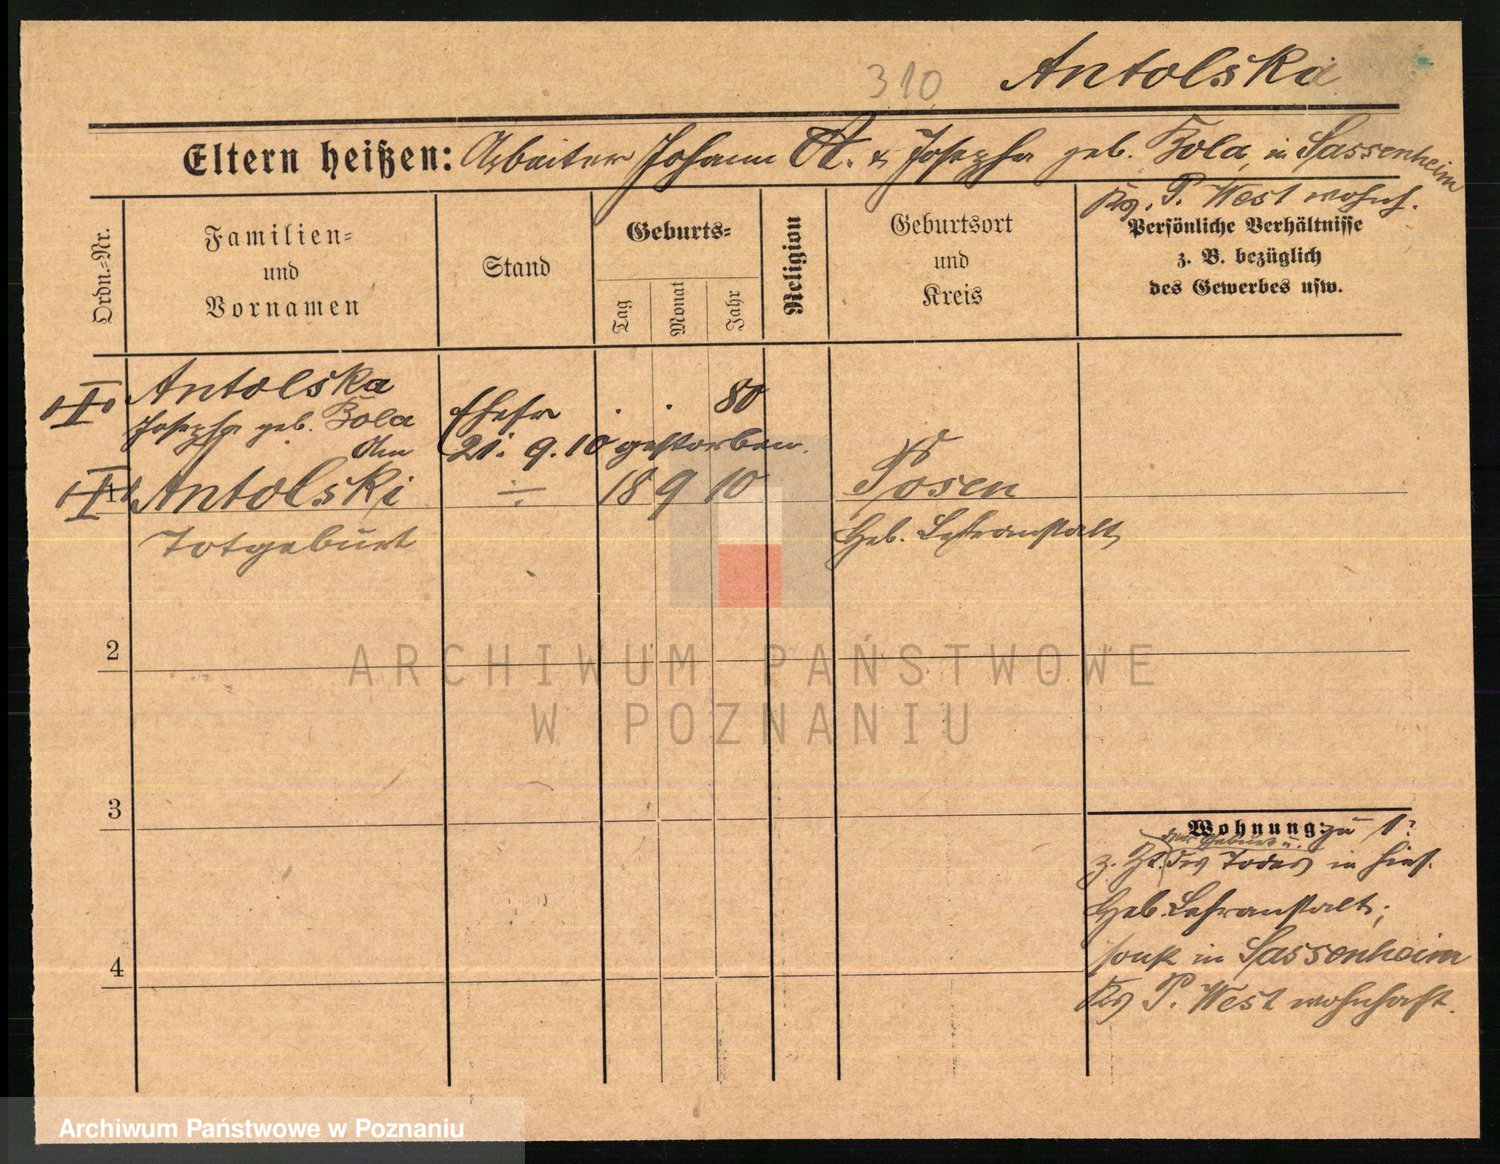 310 Antolska
Eltern heißen: Arbeiter Johann A. & Josepha geb. Zola, in Sassenheim
Krs. P. West wohnh.
Ordn.-Nr.
Familien-
und
Vornamen
Stand
Geburts-
Tag
Monat
Jahr
Religion
Geburtsort
und
Kreis
Persönliche Verhältnisse
z. B. bezüglich
des Gewerbes usw.
Antolska
Josepha geb. Zola Ehefr . . 80
Am 21. 9. 10 gestorben.
1 Antolski ÷ 18 9 10 Posen
Totgeburt Heb. Lehranstalt
2
3
4
Wohnung: zu 1:
der Geburt u.
z. Zt. des Todes in hies.
Heb. Lehranstalt;
sonst in Sassenheim
Krs P. West wohnhaft.
ARCHIWUM PAŃSTWOWE
W POZNANIU
Archiwum Państwowe w Poznaniu